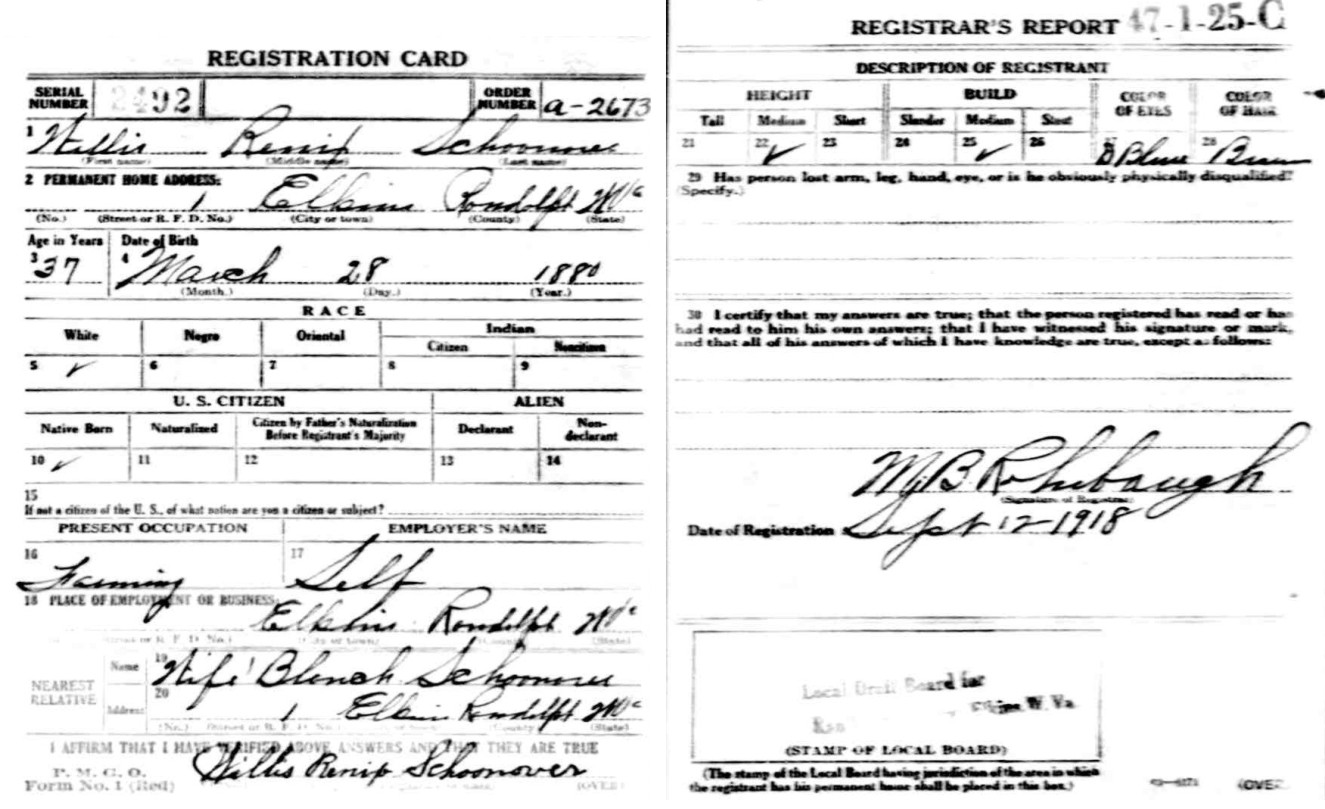 REGISTRATION CARD
SERIAL NUMBER 2492 ORDER NUMBER a-2673
1 Willis Renip Schoonover
(First name) (Middle name) (Last name)
2 PERMANENT HOME ADDRESS:
1 Elkins Randolph
(No.) (Street or R. F. D. No.) (City or town) (County) (State)
Age in Years Date of Birth
3 37 4 March 28 1880
(Month.) (Day.) (Year.)
RACE
White Negro Oriental Indian
Citizen Noncitizen
5 ✓ 6 7 8 9
U. S. CITIZEN ALIEN
Native Born Naturalized Citizen by Father's Naturalization Before Registrant's Majority Declarant Non-declarant
10 ✓ 11 12 13 14
15
If not a citizen of the U. S., of what nation are you a citizen or subject?
PRESENT OCCUPATION EMPLOYER'S NAME
16 Farming 17 Self
18 PLACE OF EMPLOYMENT OR BUSINESS:
Elkins Randolph
(Street or R. F. D. No.) (City or town) (County) (State)
NEAREST RELATIVE
Name 19 Wife Blanch Schoonover
Address 20 1 Elkins Randolph
(No.) (Street or R. F. D. No.) (City or town) (County) (State)
I AFFIRM THAT I HAVE VERIFIED ABOVE ANSWERS AND THAT THEY ARE TRUE
P. M. G. O.
Form No. 1 (Red) Willis Renip Schoonover (OVER)
REGISTRAR'S REPORT 47-1-25-C
DESCRIPTION OF REGISTRANT
HEIGHT BUILD COLOR OF EYES COLOR OF HAIR
Tall Medium Short Slender Medium Stout
21 22 ✓ 23 24 25 ✓ 26 27 Blue 28 Brown
29 Has person lost arm, leg, hand, eye, or is he obviously physically disqualified?
(Specify.)
30 I certify that my answers are true; that the person registered has read or has
had read to him his own answers; that I have witnessed his signature or mark,
and that all of his answers of which I have knowledge are true, except as follows:
M. B. Rohrbaugh
(Signature of Registrar)
Date of Registration Sept 12-1918
Local Draft Board for
Elkins, W. Va.
(STAMP OF LOCAL BOARD)
(The stamp of the Local Board having jurisdiction of the area in which
the registrant has his permanent home shall be placed in this box.)
(OVER)